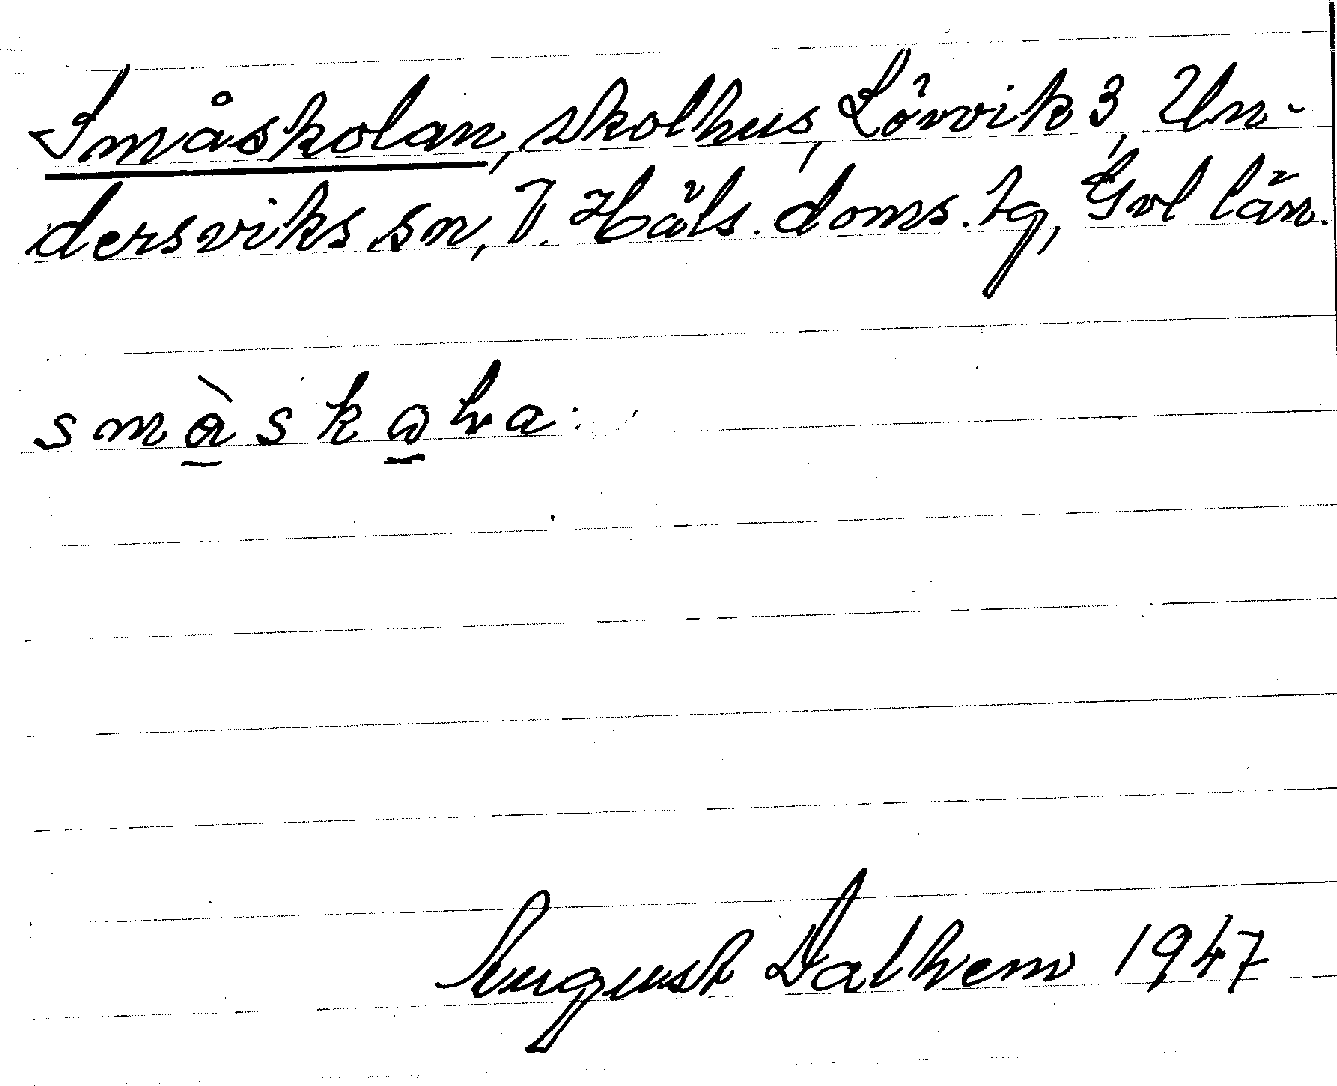 Småskolan, skolhus, Lövvik 3, Un-
dersviks sn, V. Häls. doms. tg, Gvl län.
August Dalhem 1947